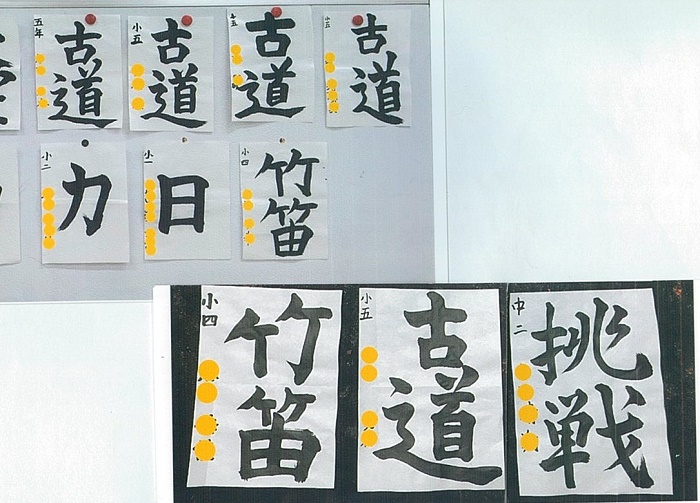 五年 古道
小五 古道
小五 古道
小五 古道
小二 力
小一 日
小四 竹笛
小四 竹笛
小五 古道
中二 挑戦